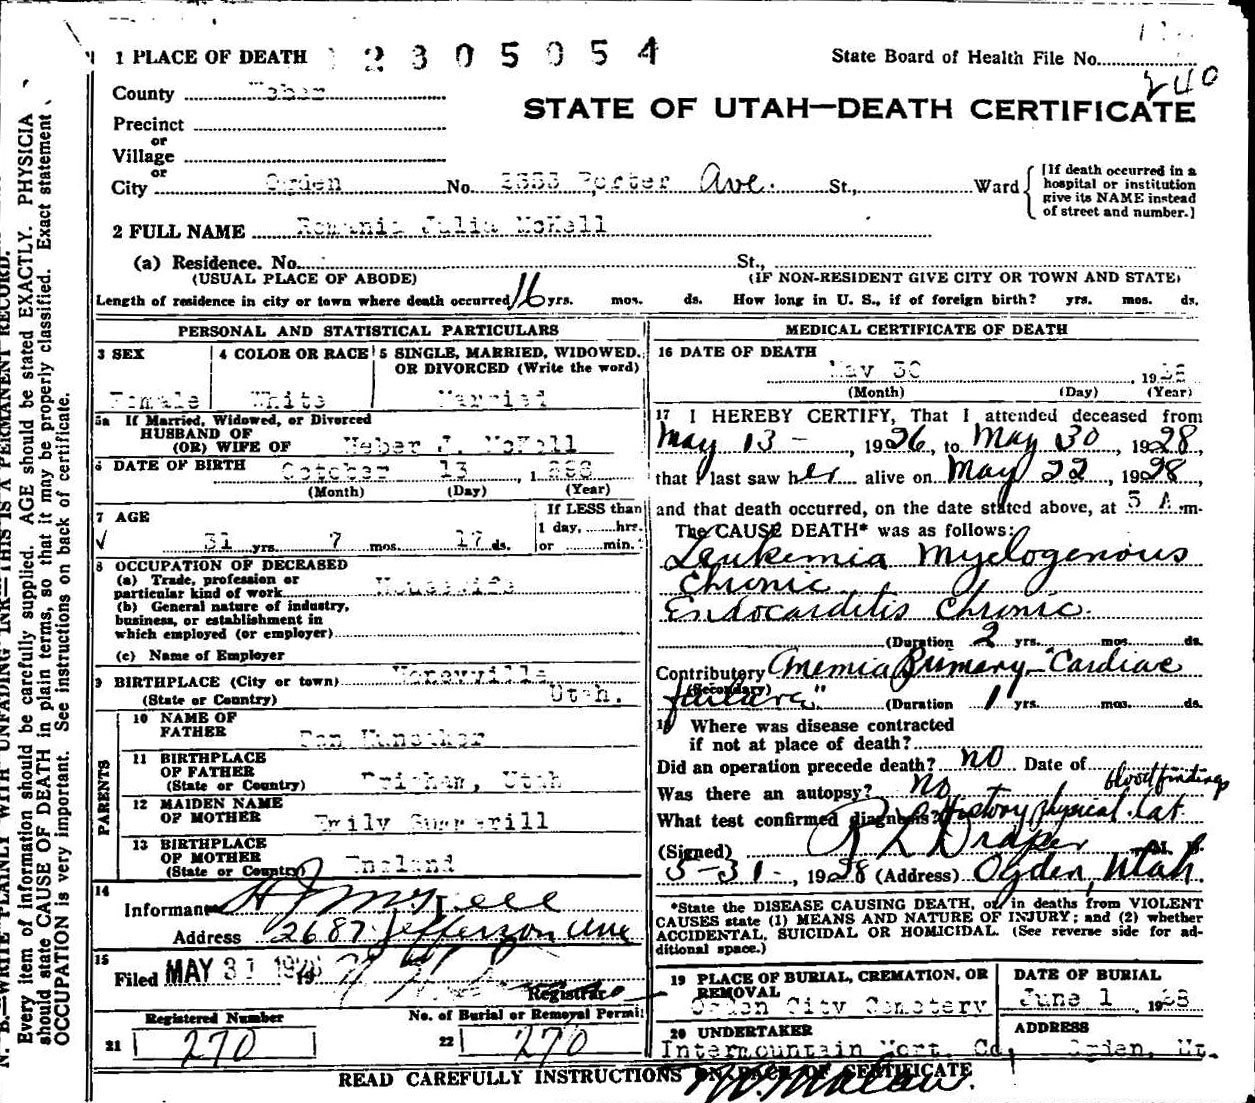 1 PLACE OF DEATH 2305054 State Board of Health File No.
240
County Weber
STATE OF UTAH—DEATH CERTIFICATE
Precinct
or
Village
or
City Ogden No. Porter Ave. St., Ward
[If death occurred in a hospital or institution give its NAME instead of street and number.]
2 FULL NAME Romania Julia McKell
(a) Residence. No. St.,
(USUAL PLACE OF ABODE) (IF NON-RESIDENT GIVE CITY OR TOWN AND STATE)
Length of residence in city or town where death occurred 16 yrs. mos. ds. How long in U. S., if of foreign birth? yrs. mos. ds.
PERSONAL AND STATISTICAL PARTICULARS
3 SEX 4 COLOR OR RACE 5 SINGLE, MARRIED, WIDOWED, OR DIVORCED (Write the word)
Female White Married
5a If Married, Widowed, or Divorced
HUSBAND OF
(OR) WIFE OF Heber J. McKell
6 DATE OF BIRTH October 13, 1
(Month) (Day) (Year)
7 AGE If LESS than
1 day, hrs.
31 yrs. 7 mos. 17 ds. or min.
8 OCCUPATION OF DECEASED
(a) Trade, profession or
particular kind of work Housewife
(b) General nature of industry,
business, or establishment in
which employed (or employer)
(c) Name of Employer
9 BIRTHPLACE (City or town) Honeyville
(State or Country) Utah.
PARENTS
10 NAME OF
FATHER Dan Hunsaker
11 BIRTHPLACE
OF FATHER
(State or Country) Brigham, Utah
12 MAIDEN NAME
OF MOTHER Emily Summerill
13 BIRTHPLACE
OF MOTHER
(State or Country) England
14
Informant H J McKell
Address 2687 Jefferson Ave
15
Filed MAY 31 1928 19
Registrar
Registered Number No. of Burial or Removal Permit
21 270 22 270
MEDICAL CERTIFICATE OF DEATH
16 DATE OF DEATH
May 30, 1928
(Month) (Day) (Year)
17 I HEREBY CERTIFY, That I attended deceased from
May 13 -, 1926, to May 30, 1928,
that I last saw her alive on May 22, 1928,
and that death occurred, on the date stated above, at 5 A. m.
The CAUSE DEATH* was as follows:
Leukemia Myelogenous
Chronic
Endocarditis Chronic.
(Duration 2 yrs. mos. ds.
Contributory Anemia Primary - Cardiac
(Secondary)
failure" (Duration 1 yrs. mos. ds.
18 Where was disease contracted
if not at place of death?
Did an operation precede death? no Date of
Was there an autopsy? No blood findings
What test confirmed diagnosis? History physical. Lab.
(Signed) R L Draper M. D.
5-31-, 1928 (Address) Ogden, Utah.
*State the DISEASE CAUSING DEATH, or in deaths from VIOLENT
CAUSES state (1) MEANS AND NATURE OF INJURY; and (2) whether
ACCIDENTAL, SUICIDAL OR HOMICIDAL. (See reverse side for ad-
ditional space.)
19 PLACE OF BURIAL, CREMATION, OR REMOVAL DATE OF BURIAL
Ogden City Cemetery June 1 1928
20 UNDERTAKER ADDRESS
Intermountain Mort. Co. Ogden, Ut.
READ CAREFULLY INSTRUCTIONS ON BACK OF CERTIFICATE
N. B.—WRITE PLAINLY WITH UNFADING INK—THIS IS A PERMANENT RECORD.
Every item of information should be carefully supplied. AGE should be stated EXACTLY. PHYSICIA
should state CAUSE OF DEATH in plain terms, so that it may be properly classified. Exact statement
OCCUPATION is very important. See instructions on back of certificate.